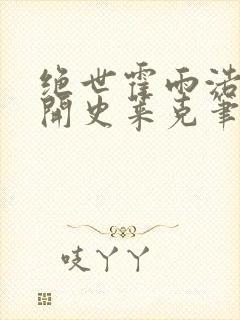 绝世霍雨浩
开史莱克笔
吱丫丫